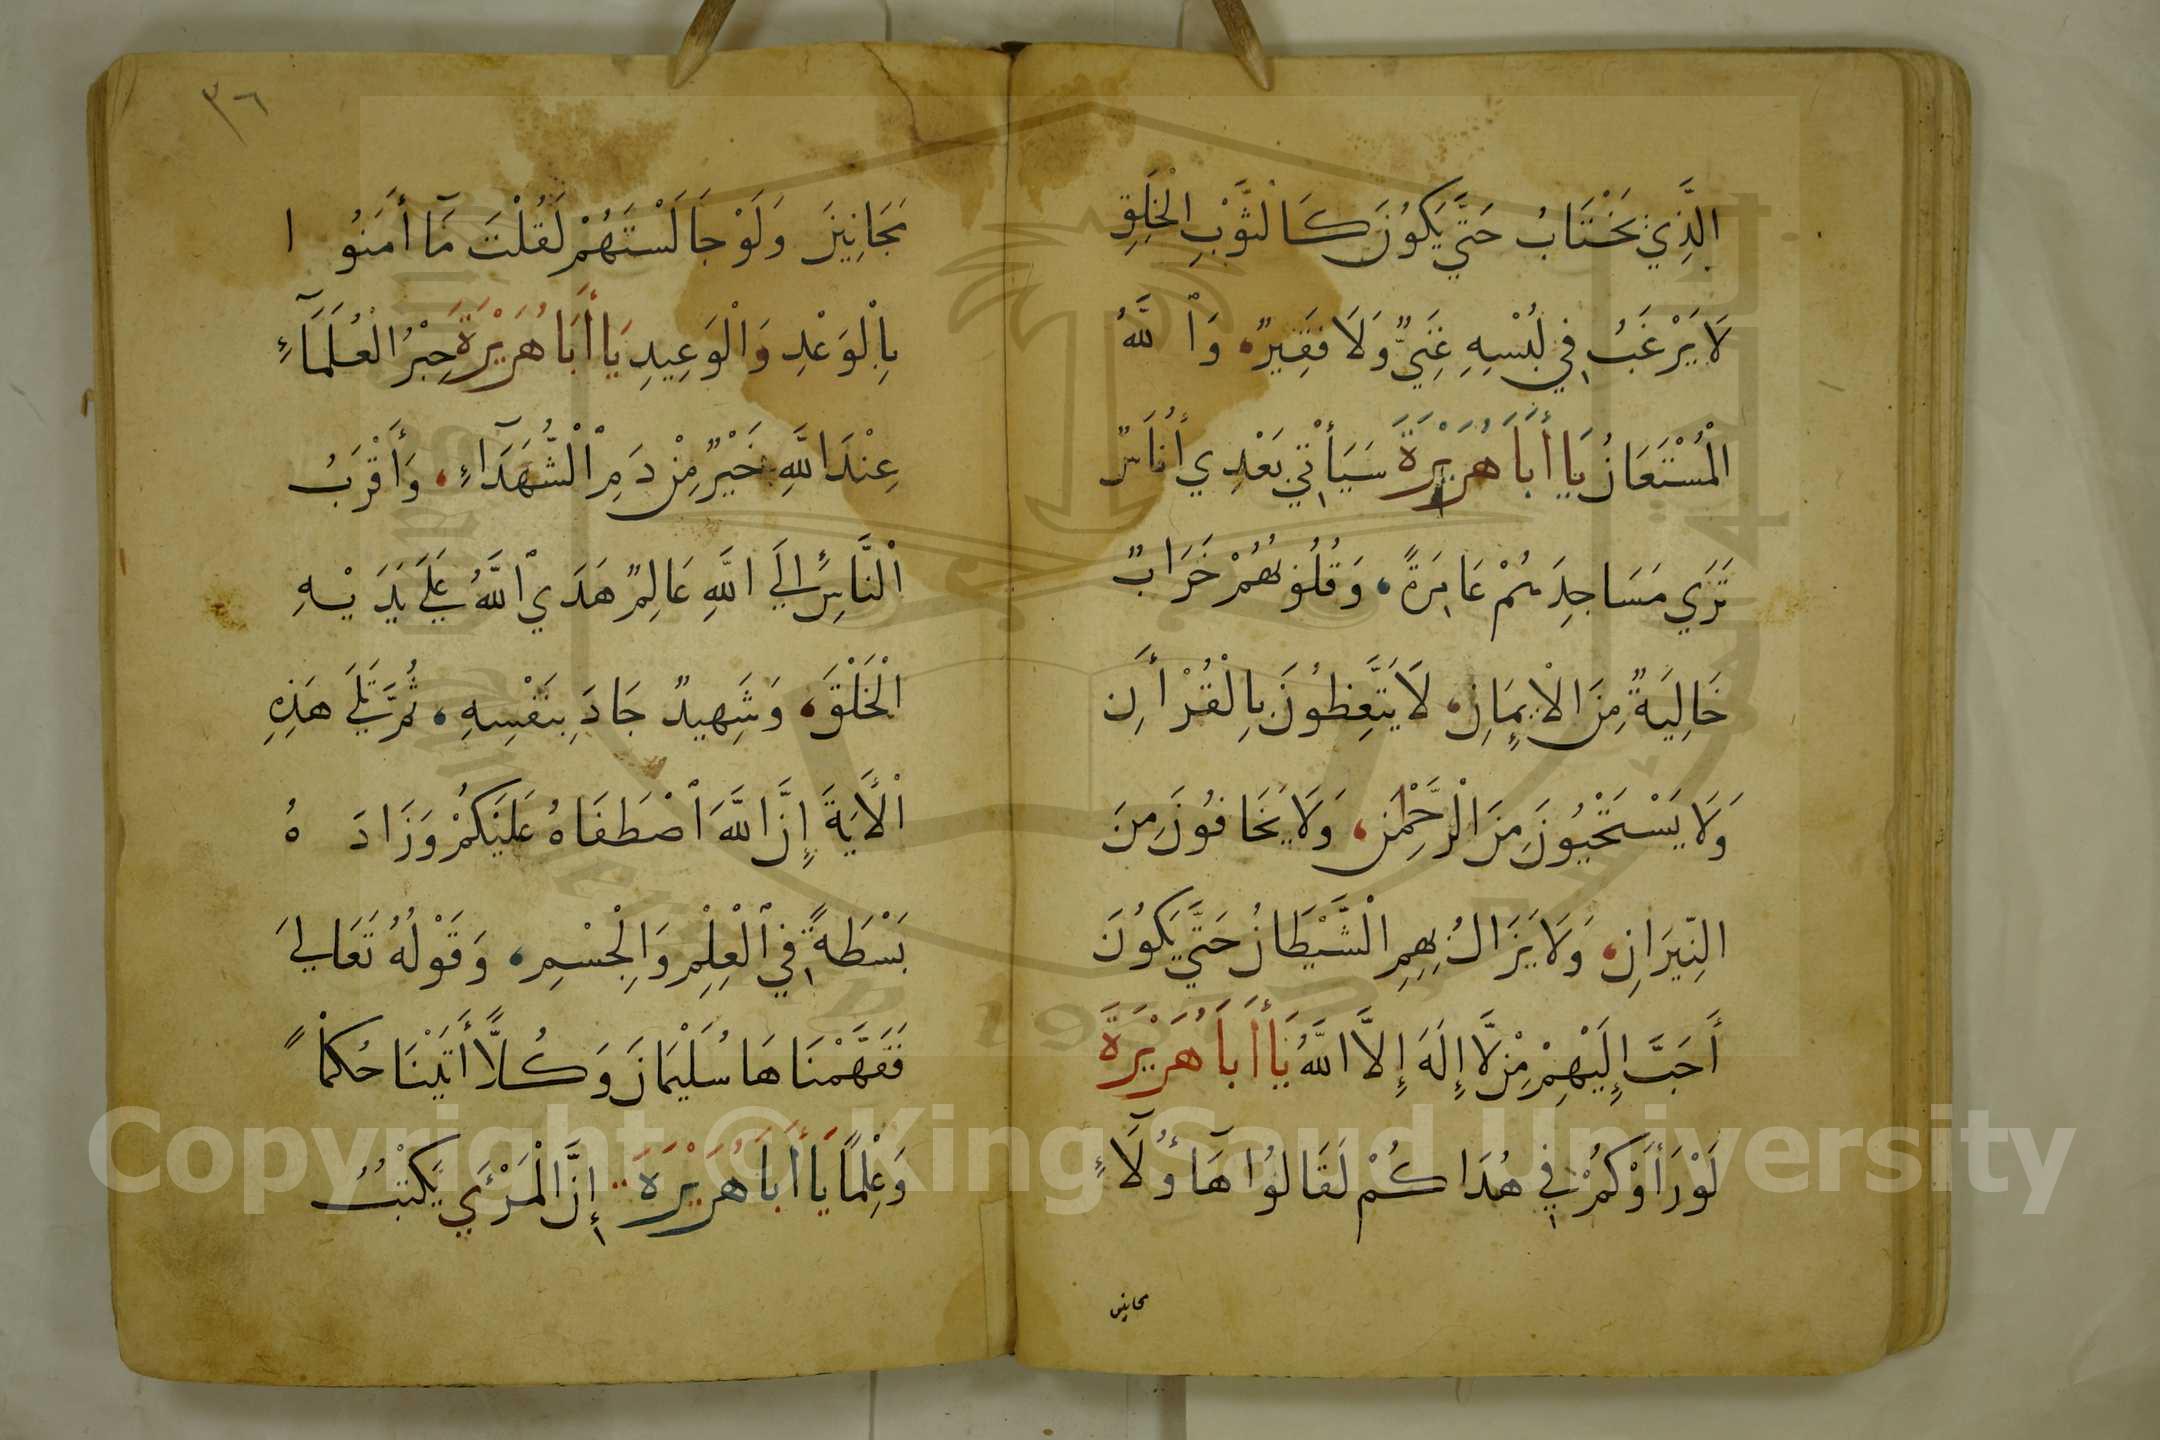 الَّذِي يَخْتَابُ حَتَّي يَكُونَ كَالثَّوْبِ الْخَلِقِ
لَا يَرْغَبُ فِي لُبْسِهِ غَنِيٌّ وَلَا فَقِيرٌ، وَاللَّهُ
الْمُسْتَعَانُ يَا أَبَا هُرَيْرَةَ سَيَأْتِي بَعْدِي أُنَاسٌ
تَرَي مَسَاجِدَهُمْ عَامِرَةً، وَقُلُوبُهُمْ خَرَابٌ
خَالِيَةٌ مِنَ الْإِيمَانِ، لَا يَتَّعِظُونَ بِالْقُرْأَنِ
وَلَا يَسْتَحْيُونَ مِنَ الرَّحْمٰنِ، وَلَا يَخَافُونَ مِنَ
النِّيرَانِ، وَلَا يَزَالُ بِهِمِ الشَّيْطَانُ حَتَّي يَكُونَ
أَحَبَّ إِلَيْهِمْ مِنْ لَا إِلَهَ إِلَّا اللَّهُ يَا أَبَا هُرَيْرَةَ
لَوْ رَأَوْكُمْ فِي هُدَاكُمْ لَقَالُوا هَآؤُلَآءِ
مجانين
٣٦
مَجَانِينَ وَلَوْ جَالَسْتَهُمْ لَقُلْتَ مَآ أَمَنُوا
بِالْوَعْدِ وَالْوَعِيدِ يَا أَبَا هُرَيْرَةَ حِبْرُ الْعُلَمَآءِ
عِنْدَ اللَّهِ خَيْرٌ مِنْ دَمِ الشُّهَدَآءِ، وَأَقْرَبُ
النَّاسِ إِلَي اللَّهِ عَالِمٌ هَدَي اللَّهُ عَلَي يَدَيْهِ
الْخَلْقَ، وَشَهِيدٌ جَادَ بِنَفْسِهِ، ثُمَّ تَلَي هَذِهِ
الْأَيَةَ إِنَّ اللَّهَ اصْطَفَاهُ عَلَيْكُمْ وَزَادَهُ
بَسْطَةً فِي الْعِلْمِ وَالْجِسْمِ، وَقَوْلُهُ تَعَالَي
فَفَهَّمْنَاهَا سُلَيْمَانَ وَكُلًّا أَتَيْنَا حُكْمًا
وَعِلْمًا يَا أَبَا هُرَيْرَةَ إِنَّ الْمَرْئَ يَكْتُبُ
Copyright © King Saud University